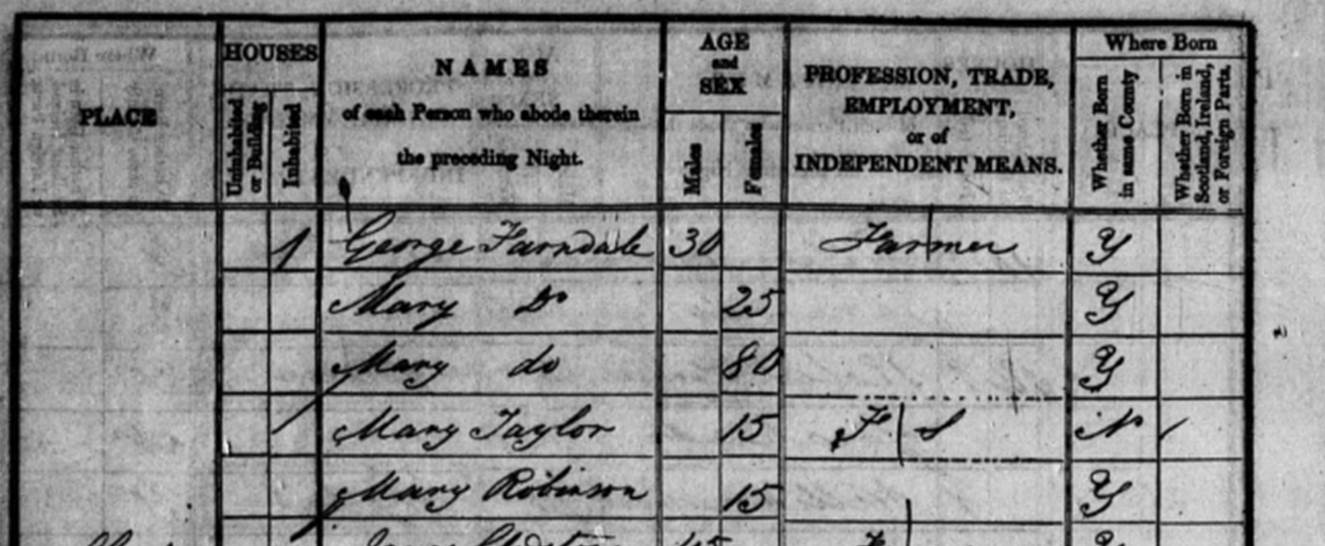 PLACE HOUSES Uninhabited or Building Inhabited NAMES of each Person who abode therein the preceding Night. AGE and SEX Males Females PROFESSION, TRADE, EMPLOYMENT, or of INDEPENDENT MEANS. Where Born Whether Born in same County Whether Born in Scotland, Ireland, or Foreign Parts.
1 George Farndale 30 Farmer Y
Mary Do 25 Y
Mary do 80 Y
Mary Taylor 15 F S N
Mary Robinson 15 Y